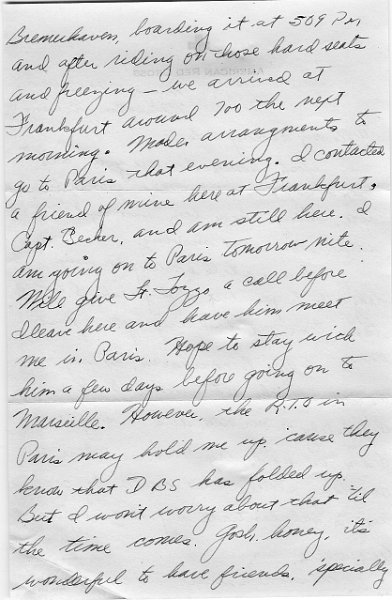 Bremerhaven, boarding it at 509 PM
and after riding on those hard seats
and freezing — we arrived at
Frankfurt around 700 the next
morning. Made arrangments to
go to Paris that evening. I contacted
a friend of mine here at Frankfurt,
Capt. Becker, and am still here. I
am going on to Paris tomorrow nite.
Will give Lt. Tozzo a call before
I leave here and have him meet
me in Paris. Hope to stay with
him a few days before going on to
Marseille. However, the R.T.O in
Paris may hold me up cause they
know that DBS has folded up.
But I won't worry about that 'til
the time comes. Gosh, honey, it's
wonderful to have friends, specially